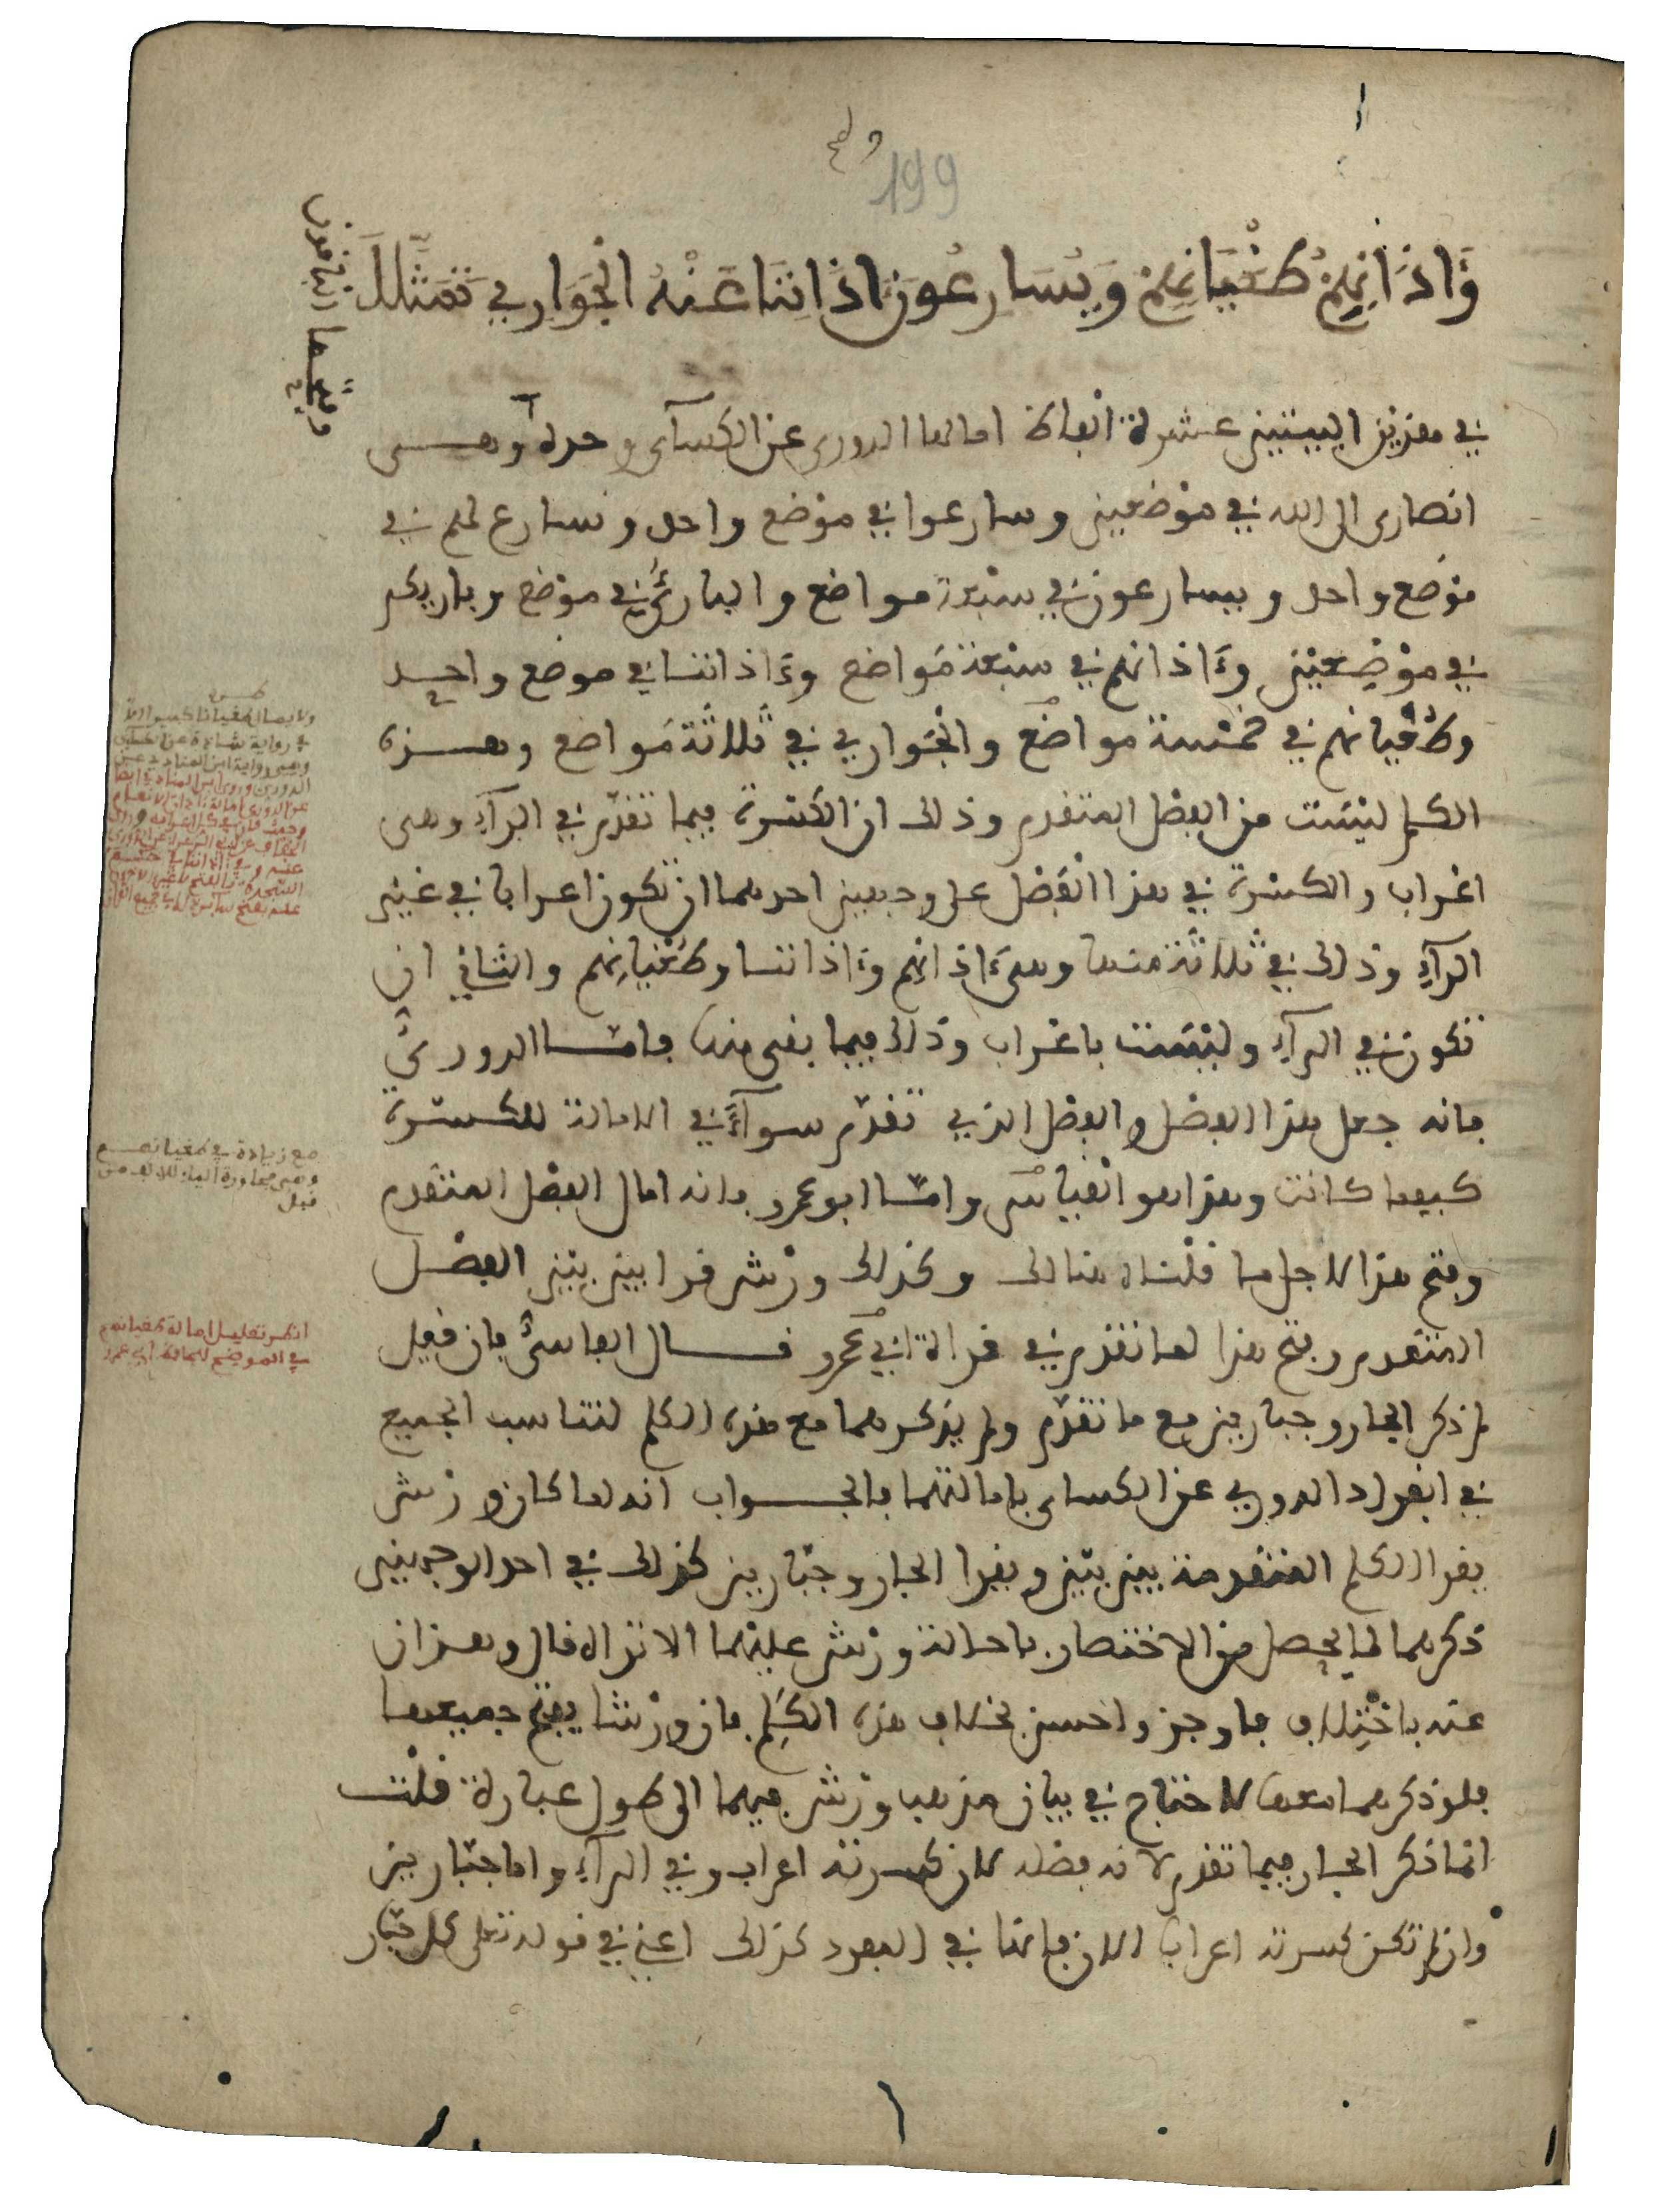 199
وَءَاذَانِهِمْ طُغْيَانِهِمْ وَيُسَارِعُونَ ءَاذَانِنَا عَنْهُ الْجَوَارِي تَمَثَّلَا
في هذين البيتين عشرة ألفاظ امالها الدوري عن الكسآي وحده وهي
انصاري الى الله في موضعين وسارعوا في موضع واحد ونسارع لهم في
موضع واحد ويسارعون في سبعة مواضع والبارئ في موضع وبارئكم
في موضعين وءاذانهم في سبعة مواضع وءاذاننا في موضع واحد
وطغيانهم في خمسة مواضع والجواري في ثلاثة مواضع وهذه
الكلم ليست من الفصل المتقدم وذلك ان الكسرة فيما تقدّم في الرآء وهي
اعراب والكسرة في هذا الفصل على وجهين احدهما ان تكون اعرابا في غير
الرآء وذلك في ثلاثة منها وهي ءاذانهم وءاذاننا وطغيانهم والثاني ان
تكون في الرآء وليست باعراب وذلك فيما بقي منها فامّا الدوري
فانه جعل هذا الفصل والفصل الذي تقدّم سوآءً في الامالة للكسرة
كيفما كانت وهذا هو القياس وامّا ابو عمرو فانه امال الفصل المتقدم
وفتح هذا لاجل ما قلناه هنالك وكذلك ورش قرا بين بين الفصل
المتقدم وفتح هذا لما تقدم في قراة ابي عمرو قال الفاسي فان قيل
لم ذكر الجار وجبارين مع ما تقدّم ولم يذكرهما مع هذه الكلم لتناسب الجميع
في انفراد الدوري عن الكساي بامالتهما فالجواب انه لما كان ورش
يقرا الكلم المتقدمة بين بين ويقرا الجار وجبارين كذلك في احد الوجهين
ذكرهما لما يحصل من الاختصار باحالة ورش عليهما الا تراه قال وهذان
عنه باختلاف فاوجز واحسن بخلاف هذه الكلم فان ورشا يفتح جميعها
فلو ذكرهما معها لاحتاج في بيان مذهب ورش فيهما الى طول عبارة قلت
انما ذكر الجار فيما تقدم لانه فصله لان كسرته اعراب وفي الرآء واما جبارين
وان لم تكن كسرته اعرابا الا ان فامّا في العقود كذلك اعني في قوله تعلى كل جبّار
مع زيادة في طغيانهم
وهي مجاورة الياء للالف من
قبل
انظر تعليل امالة طغيانهم
في الموضع لمخالفة ابي عمرو